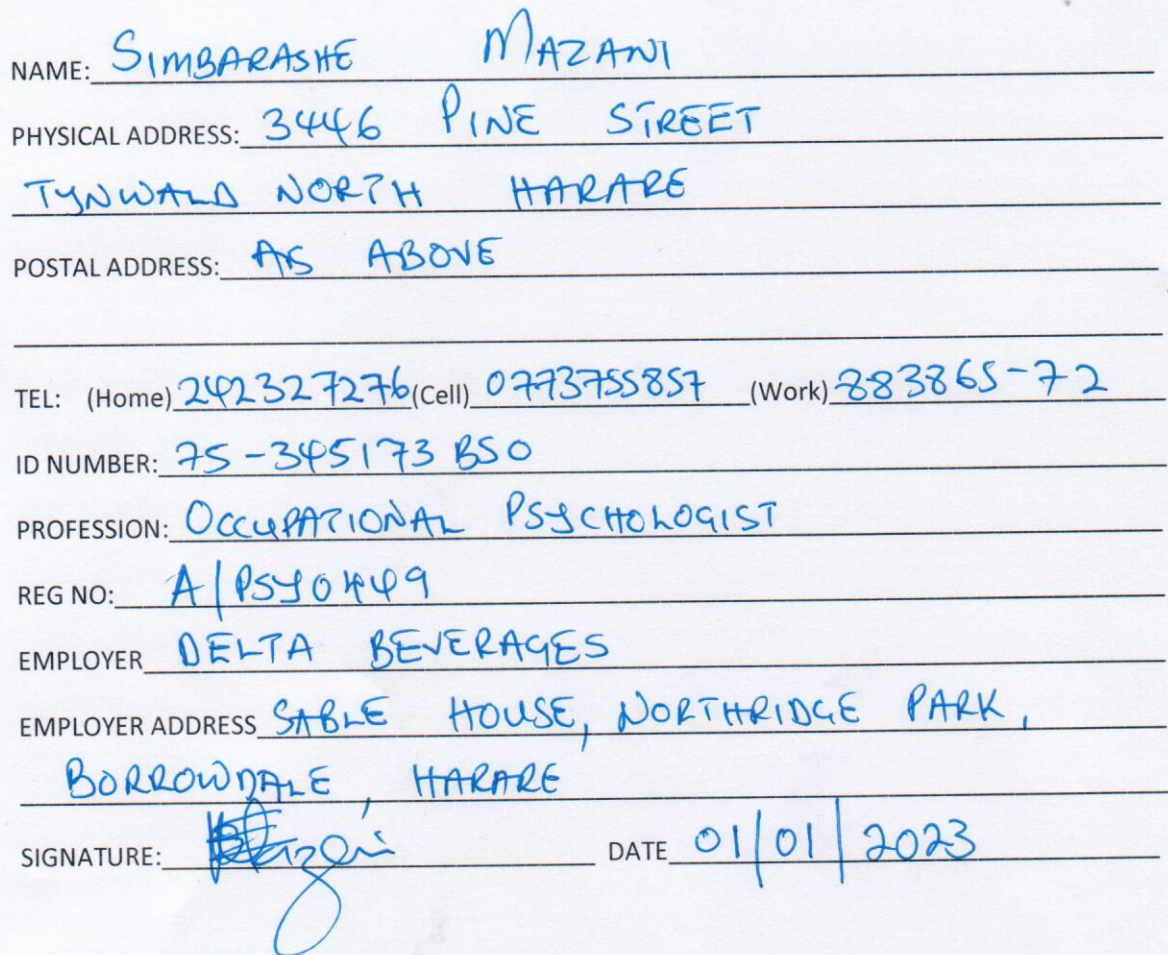 NAME: SIMBARASHE MAZANI
PHYSICAL ADDRESS: 3446 PINE STREET
TYNWALD NORTH HARARE
POSTAL ADDRESS: AS ABOVE
TEL: (Home) 242327276 (Cell) 0773755857 (Work) 883865-72
ID NUMBER: 75-345173 B50
PROFESSION: OCCUPATIONAL PSYCHOLOGIST
REG NO: A/PSY0449
EMPLOYER DELTA BEVERAGES
EMPLOYER ADDRESS SABLE HOUSE, NORTHRIDGE PARK,
BORROWDALE, HARARE
SIGNATURE: DATE 01/01/2023